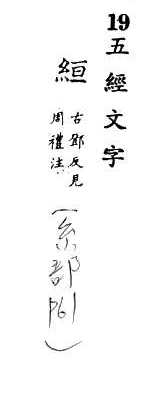 19五經文字
絙
古鄧反見
周禮注
(糸部P61)